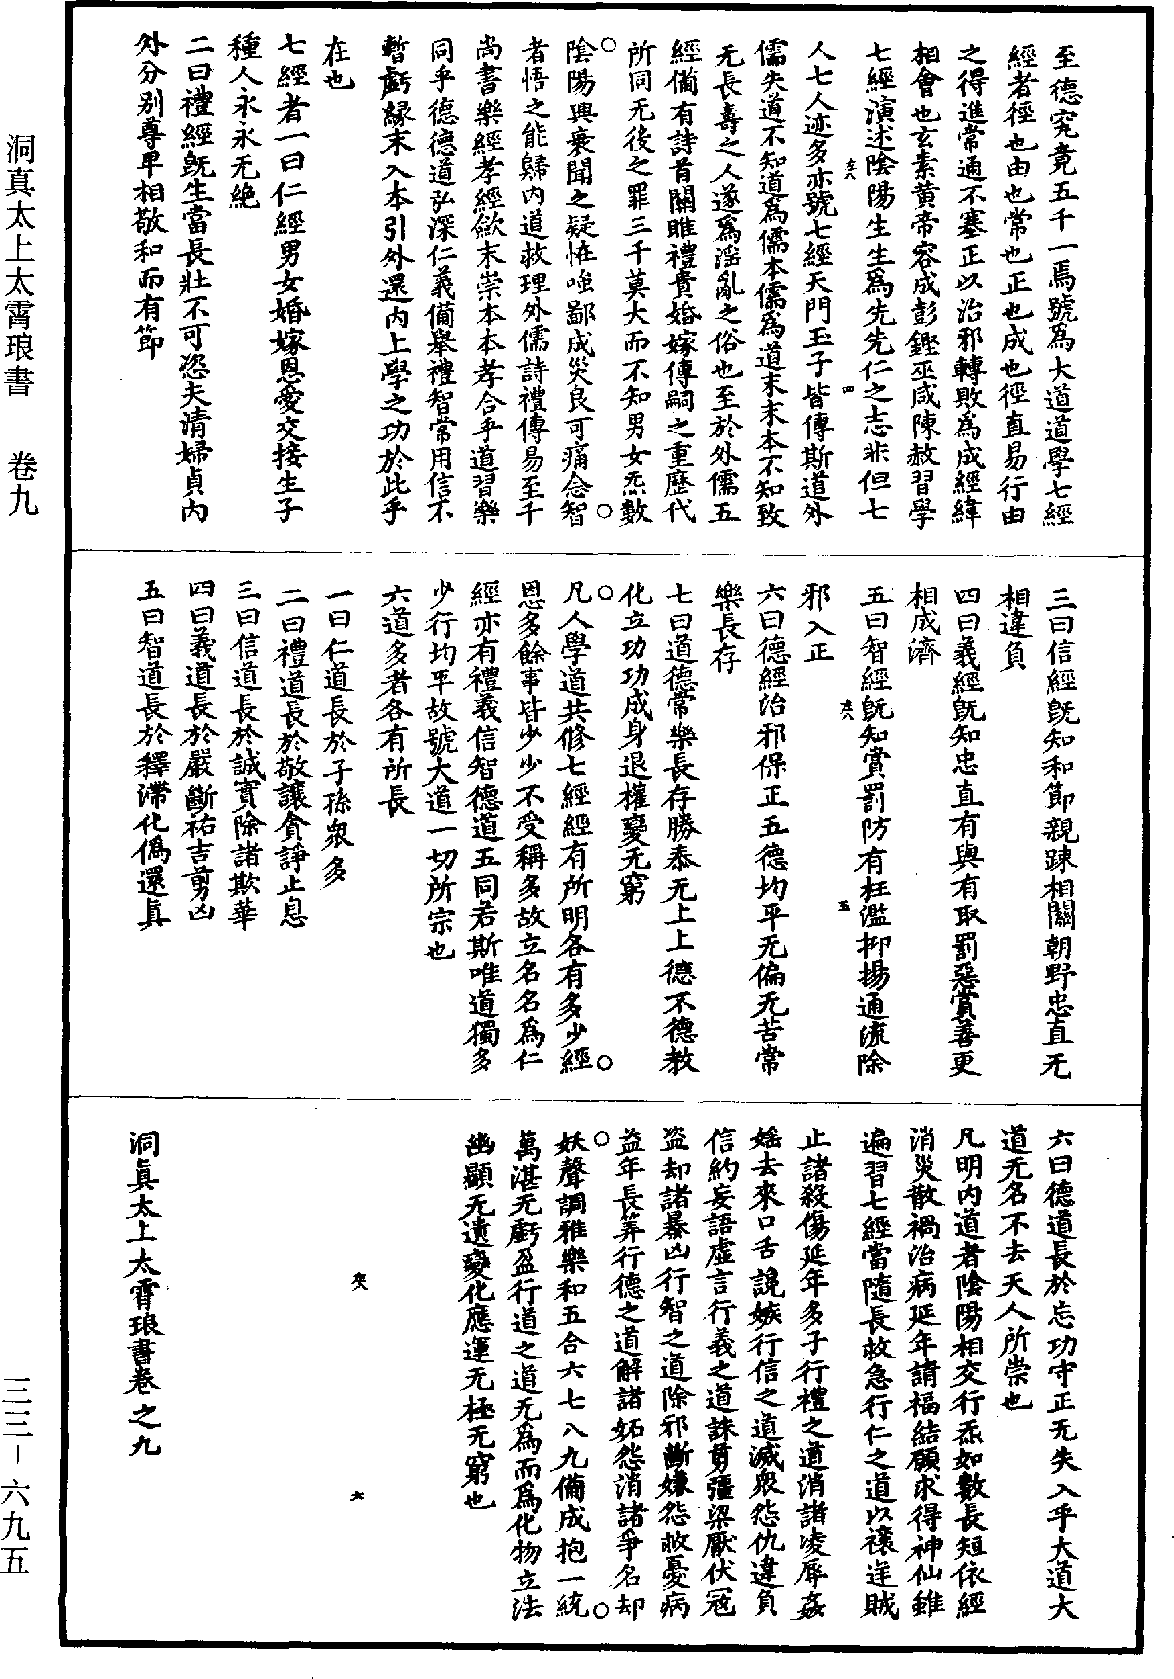 至德究竟五千一焉號爲大道道學七經
經者徑也由也常也正也成也徑直易行由
之得進常通不塞正以治邪轉敗爲成經緯
相會也玄素黃帝容成彭鏗巫咸陳赦習學
七經演述陰陽生生爲先先仁之志非但七
人七人迹多亦號七經天門玉子皆傳斯道外
儒失道不知道爲儒本儒爲道末末本不知致
无長壽之人遂爲淫亂之俗也至於外儒五
經備有詩首關雎禮貴婚嫁傳嗣之重歷代
所同无後之罪三千莫大而不知男女炁數
陰陽興衰聞之疑恠嗤鄙成災良可痛念智
者悟之能歸內道救理外儒詩禮傳易至千
尚書樂經孝經歛末崇本本孝合乎道習樂
同乎德德道弘深仁義備舉禮智常用信不
暫虧緣末入本引外還內上學之功於此乎
在也
七經者一曰仁經男女婚嫁恩愛交接生子
種人永永无絶
二曰禮經旣生當長壯不可恣夫清婦貞內
外分別尊卑相敬和而有節
三曰信經旣知和節親踈相關朝野忠直无
相違負
四曰義經旣知忠直有與有取罰惡賞善更
相成濟
五曰智經旣知賞罰防有枉濫抑揚通流除
邪入正
六曰德經治邪保正五德均平无偏无苦常
樂長存
七曰道德常樂長存勝泰无上上德不德教
化立功功成身退權變无窮
凡人學道共修七經經有所明各有多少經
恩多餘事皆少少不受稱多故立名名爲仁
經亦有禮義信智德道五同若斯唯道獨多
少行均平故號大道一切所宗也
六道多者各有所長
一曰仁道長於子孫衆多
二曰禮道長於敬讓貪諍止息
三曰信道長於誠實除諸欺華
四曰義道長於嚴斷祐吉剪凶
五曰智道長於釋滯化僞還眞
六曰德道長於忘功守正无失入乎大道大
道无名不去天人所崇也
凡明內道者陰陽相交行炁如數長短依經
消災散禍治病延年請福結願求得神仙雖
遍習七經當隨長救急行仁之道以禳逆賊
止諸殺傷延年多子行禮之道消諸凌辱姦
婬去來口舌說嫉行信之道滅衆怨仇違負
信約妄語虛言行義之道誅剪彊梁厭伏冦
盜却諸暴凶行智之道除邪斷嫌怨救憂病
益年長筭行德之道解諸妬怨消諸爭名却
妖聲調雅樂和五合六七八九備成抱一統
萬湛无虧盈行道之道无爲而爲化物立法
幽顯无遺變化應運无極无窮也
洞眞太上太霄琅書卷之九
洞真太上太霄琅書　卷九
三三－六九五